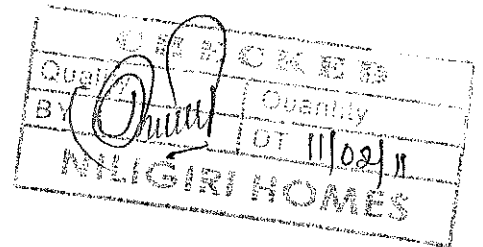 CHECKED
Quality Quantity
BY DT 11/02/11
NILIGIRI HOMES